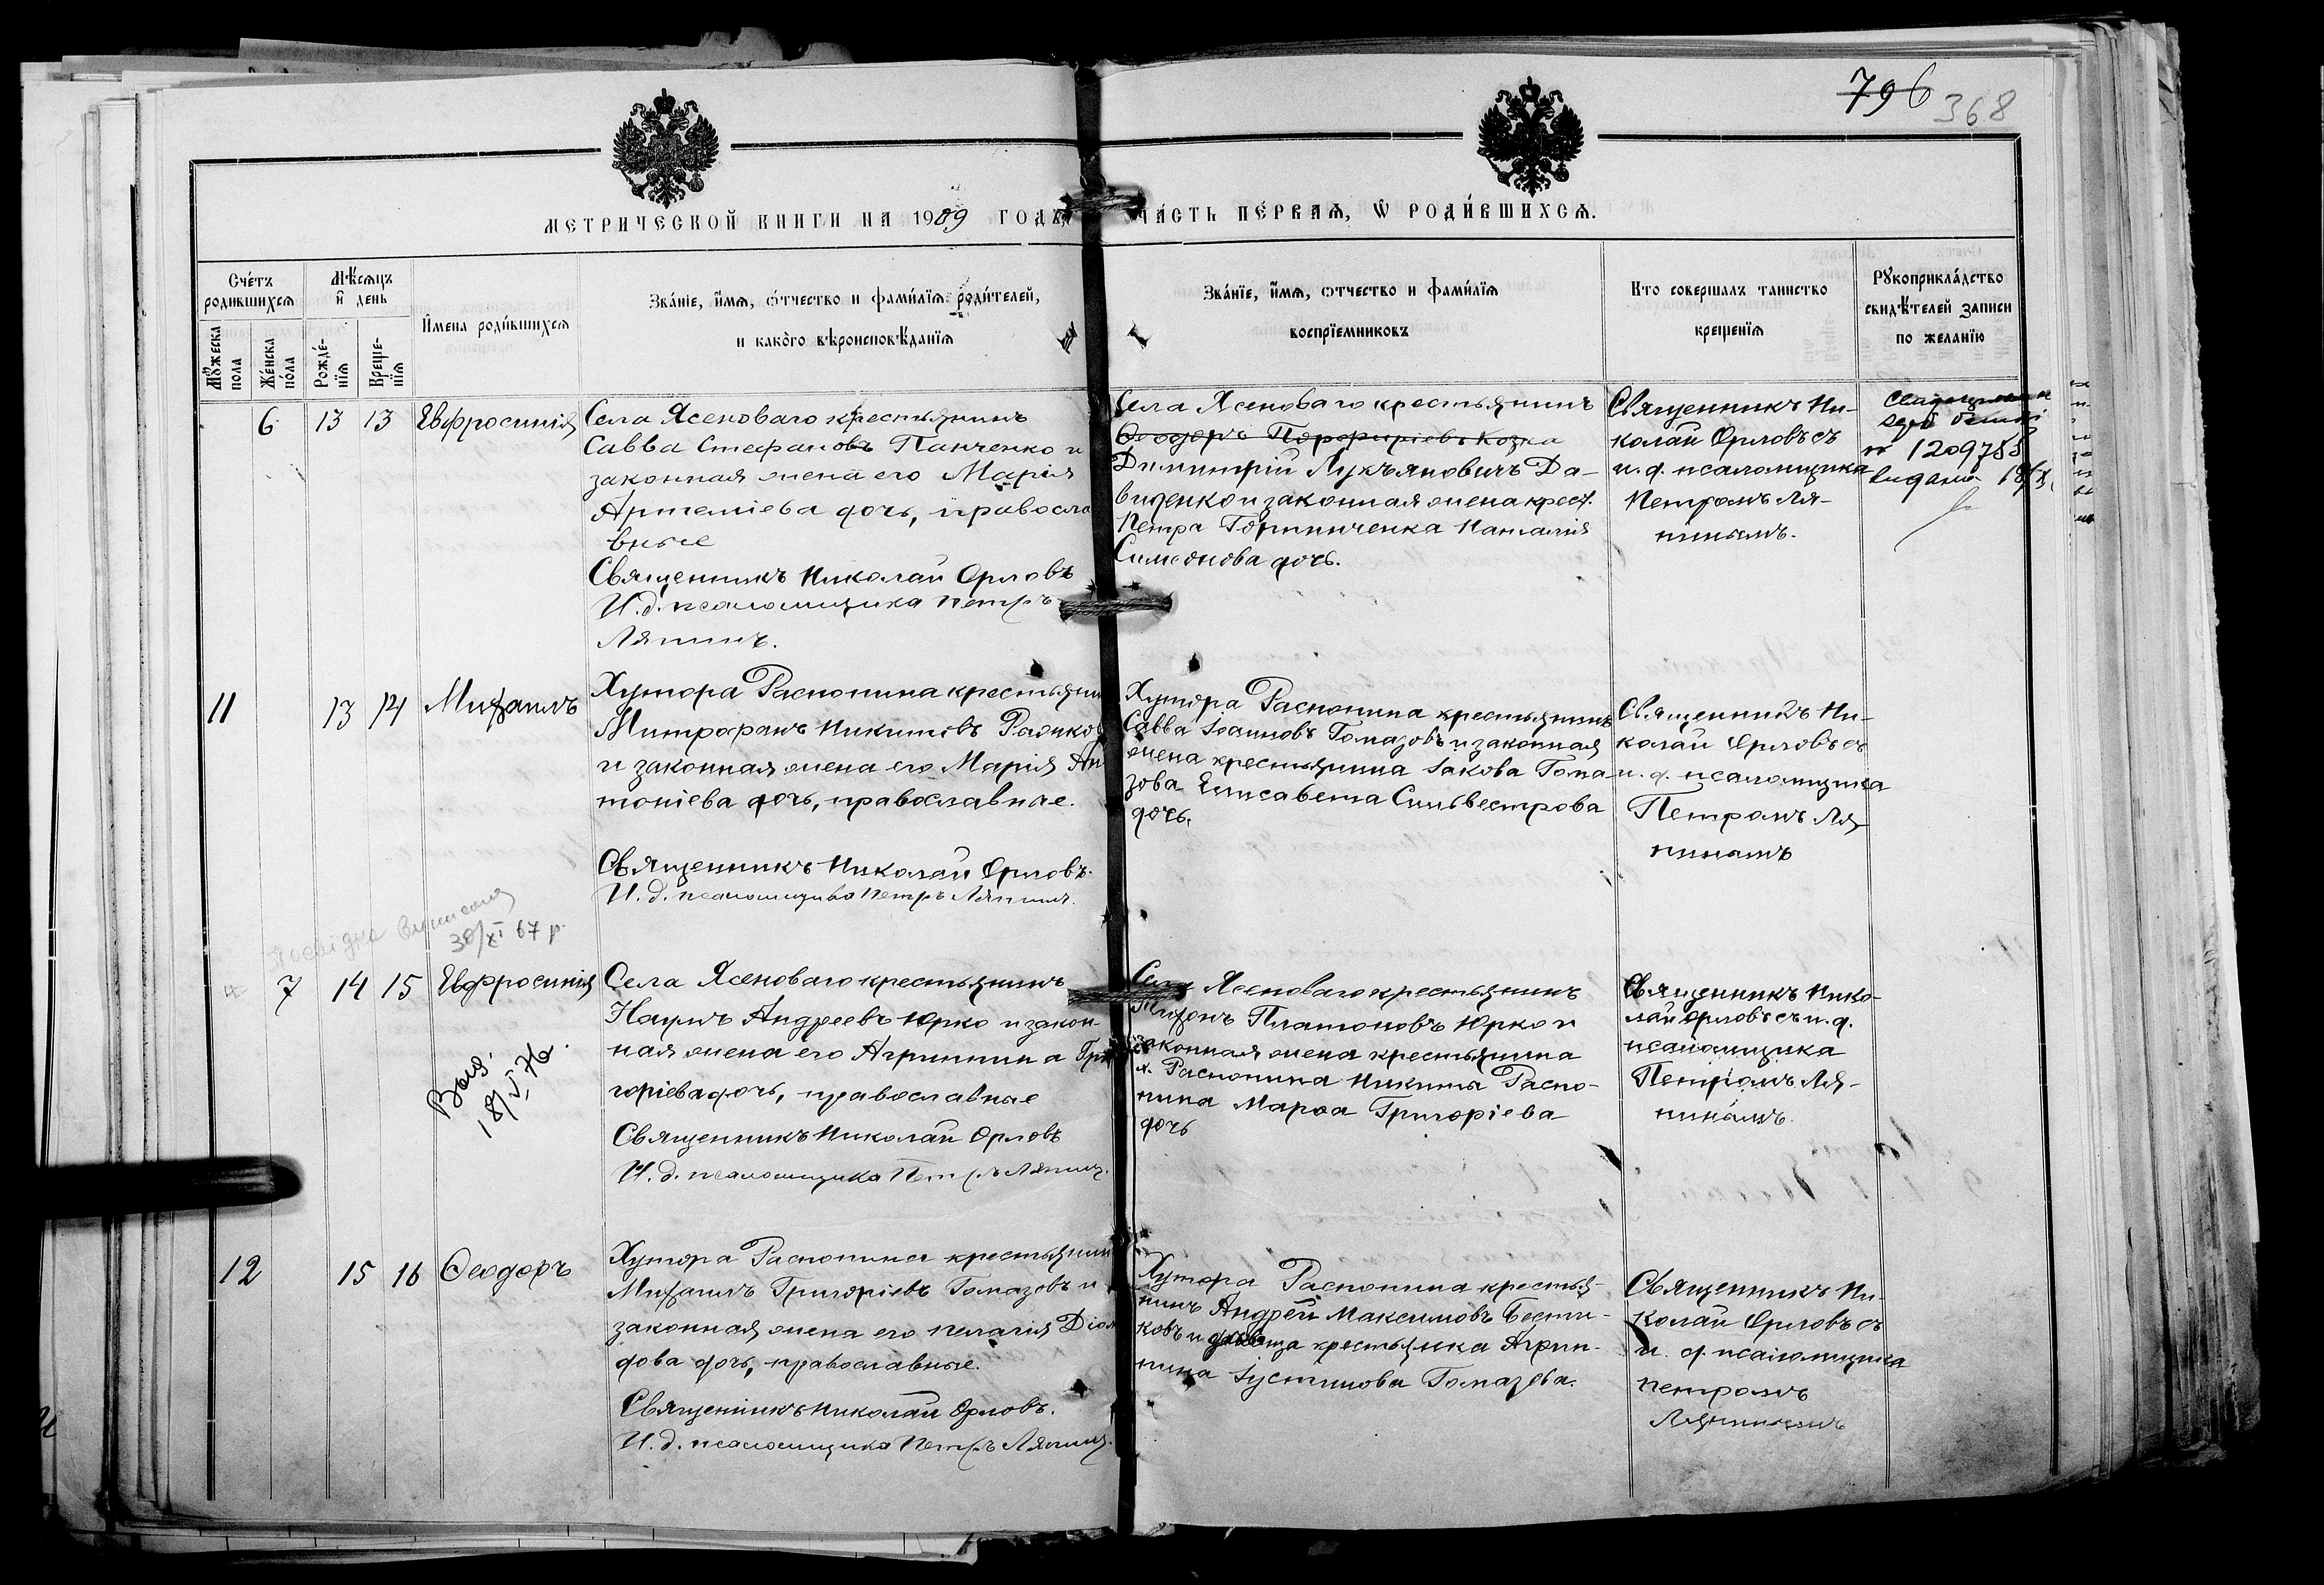 796 368
МЕТРИЧЕСКОЙ КНИГИ НА 1909 ГОДЪ,
ЧА́СТЬ ПЕ́РВАѦ, Ѡ҆ РОДИ́ВШИХСѦ.
Сче́тъ родившихсѧ
Мꙋжеска пола
Же́нска по́ла
Мѣ́сѧцъ и҆ день
Рожде́-нїѧ
Креще-нїѧ
И҆мена роди́вшихсѧ
Зва́нїе, и҆́мѧ, ѻ҆́тчество и фами́лїѧ роди́телей,
и како́го вѣроисповѣ́данїѧ
Зва́нїе, и҆́мѧ, ѻтчество и фами́лїѧ
воспрїемниковъ
Кто совершалъ таинство
крещенїѧ
Рꙋкоприкла́дство
свидѣ́телей записи
по желанїю
6 13 13 Евфросинія
Села Ясеноваго крестьянинъ
Савва Стефановъ Панченко и
законная жена его Марія
Артеміева дочь, правосла
вные
Священникъ Николай Орловъ
И.д. псаломщика Петръ
Ляпинъ.
Села Ясеноваго крестьянинъ
Ѳеодоръ Порфиріевъ Козка
Димитрій Лукъяновичъ Да-
виденко и законная жена крест.
Петра Горпинченка Наталія
Симеонова дочь.
Священникъ Ни-
колай Орловъ съ
и. д. псаломщика
Петромъ Ля-
пинымъ.
№ 1209758
11 13 14 Михаилъ
Хутора Распопина крестьянин
Митрофанъ Никитовъ
и законная жена его Марія Ан
тоніева дочь, православные.
Священникъ Николай Орловъ.
И. д. псаломщика Петръ Ляпинъ.
Хутора Распопина крестьянинъ
Савва Іоанновъ Гомазовъ и законная
жена крестьянина Іакова Гома-
зова Елисавета Сильвестрова
дочь.
Священникъ Ни-
колай Орловъ съ
и. д. псаломщика
Петромъ Ля
пинымъ
30/XI 67 р.
7 14 15 Евфросинія
Выд.
18/V 76.
Села Ясеноваго крестьянинъ
Наумъ Андреевъ Юрко и закон-
ная жена его Агриппина Гри
горіева дочь, православные
Священникъ Николай Орловъ
И. д. псаломщика Петръ Ляпинъ.
Села Ясеноваго крестьянинъ
Тихонъ Платоновъ Юрко и
законная жена крестьянина
х. Распопина Никиты Распо-
пина Марѳа Григоріева
дочь
Священникъ Нико-
лай Орловъ съ и. д.
псаломщика
Петромъ Ля-
пинымъ.
12 15 16 Ѳеодоръ
Хутора Распопина крестьянин
Михаилъ Григоріевъ Гомазовъ и
законная жена его Пелагія Діом
дова дочь, православные.
Священникъ Николай Орловъ.
И. д. псаломщика Петръ Ляпинъ.
Хутора Распопина крестья-
нинъ Андрей Максимовъ
ковъ и девица крестьянка Агрип-
пина Іустинова Гомазова.
Священникъ Ни-
колай Орловъ съ
и. д. псаломщика
Петромъ
Ляпинымъ